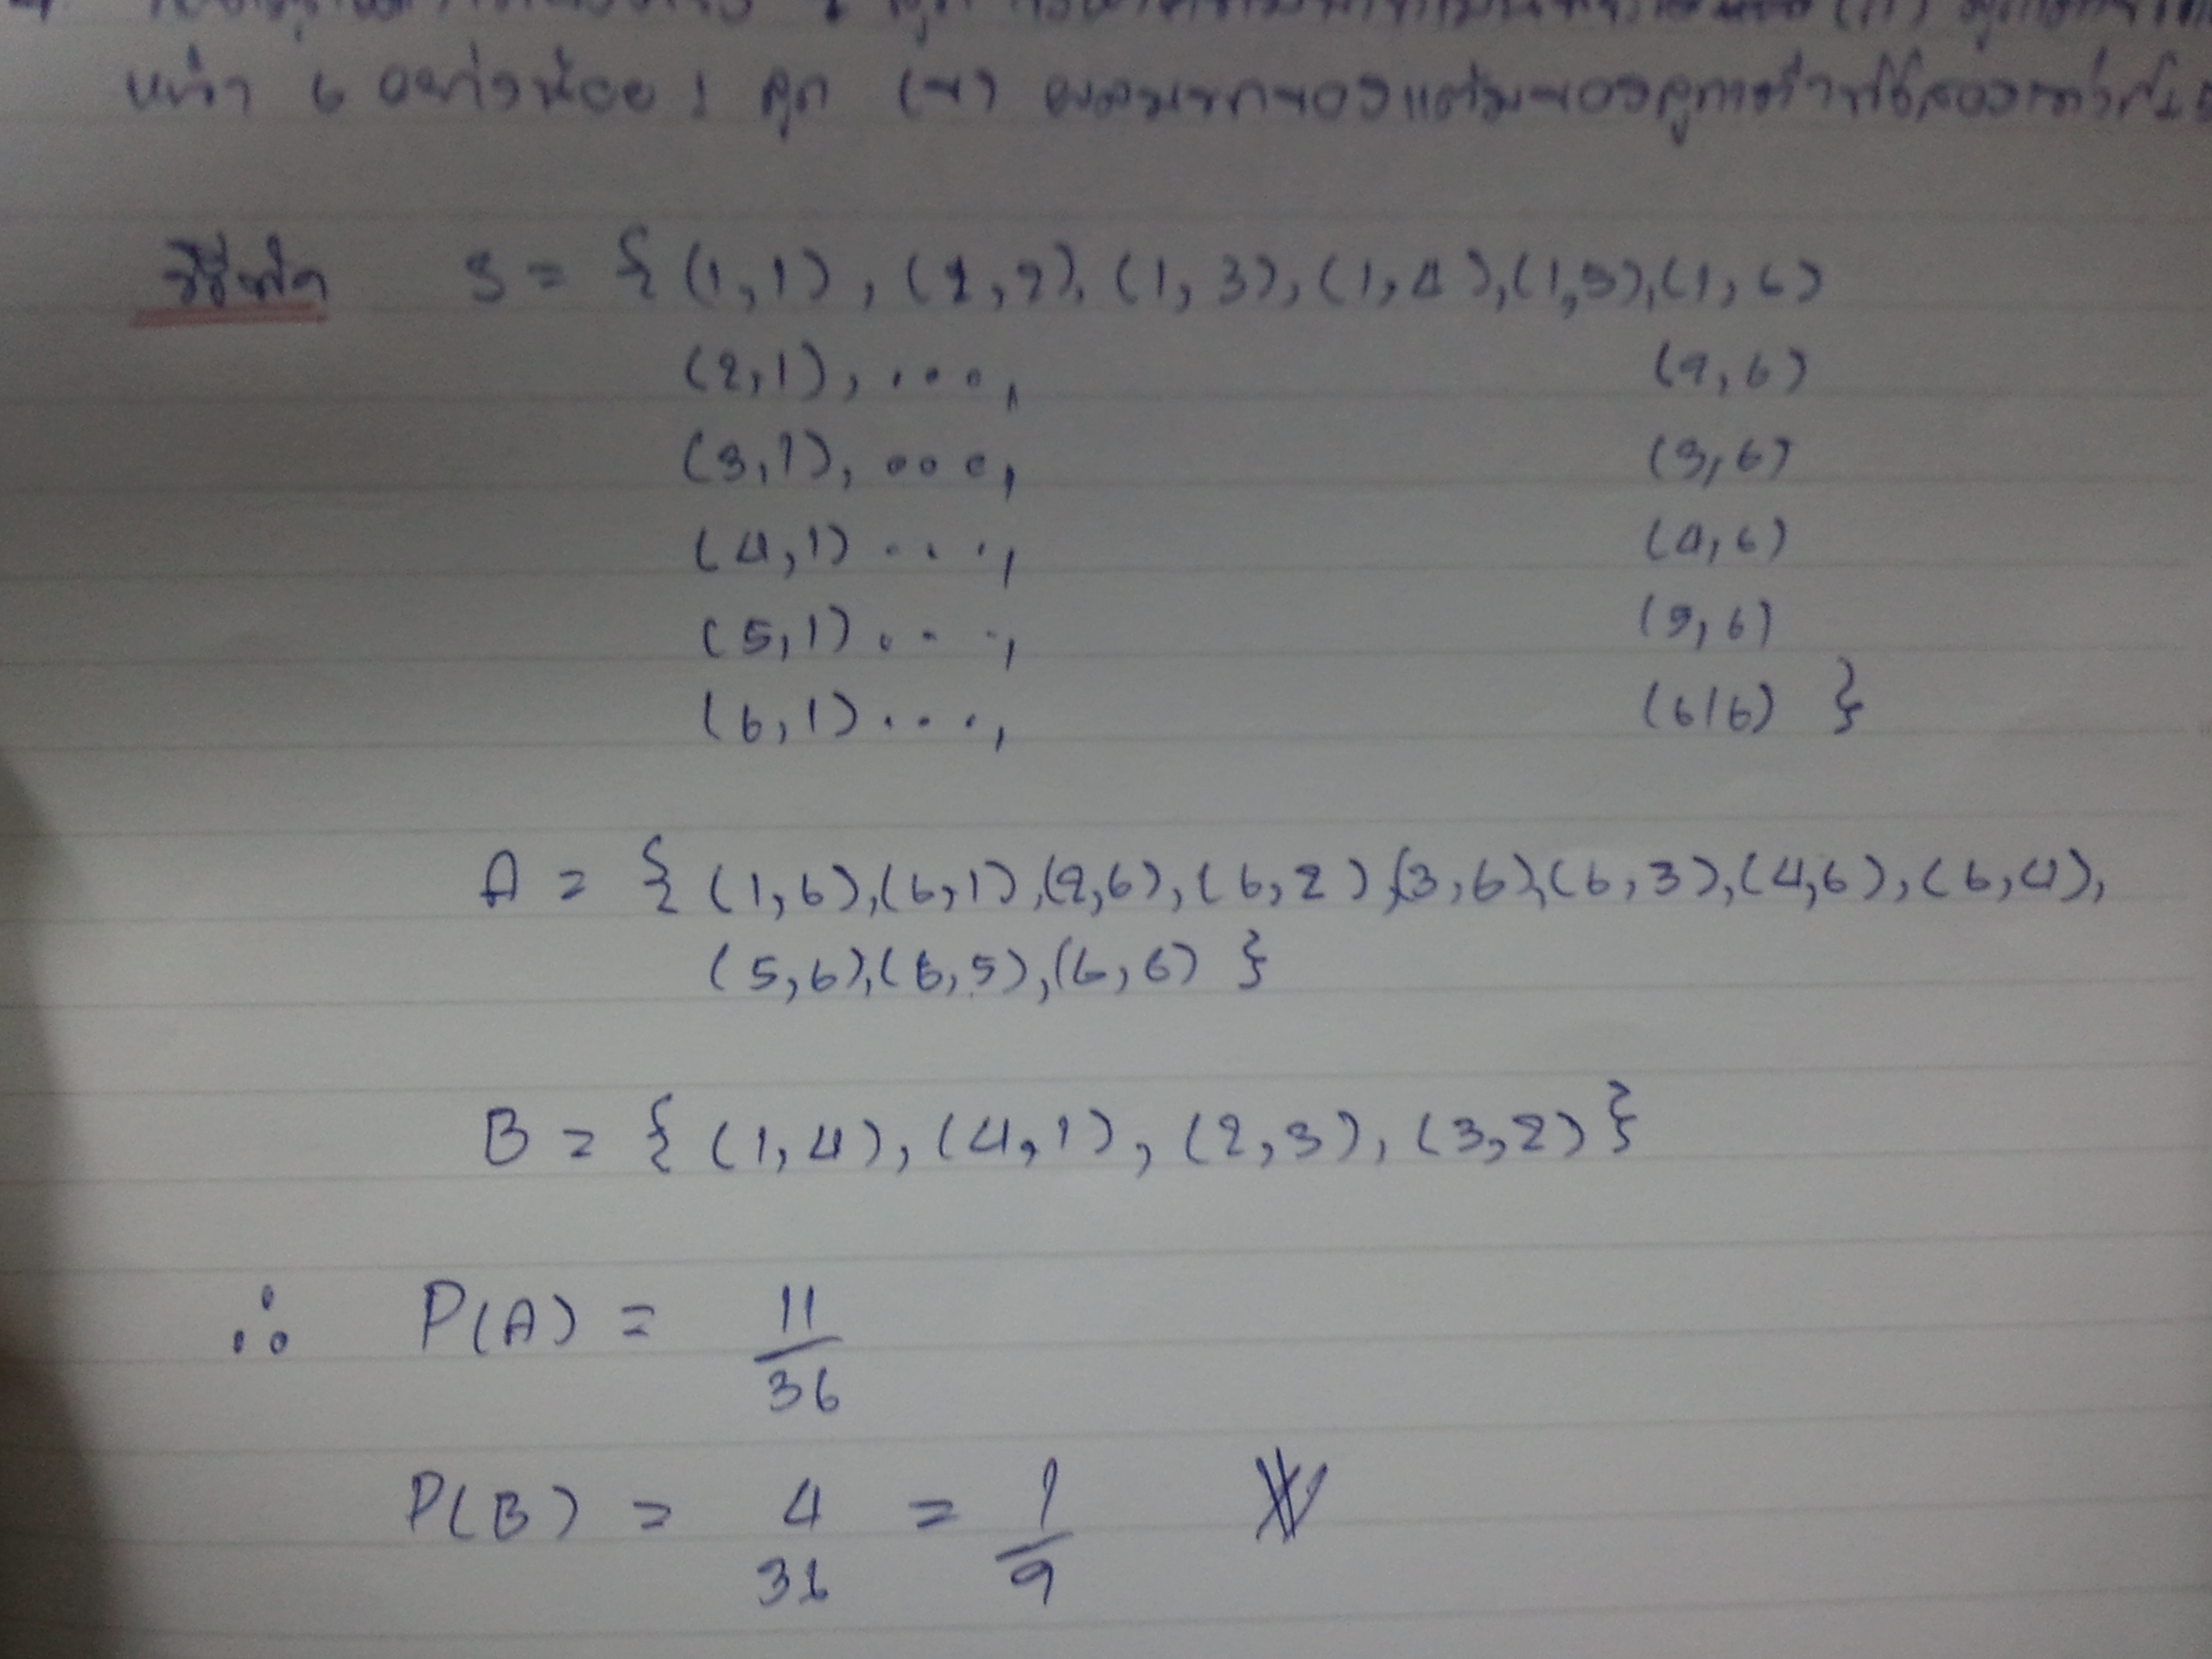 หน้า 6 อย่างน้อย 1 ลูก (ข) ผลบวกของแต้มของลูกเต๋าทั้งสองเท่ากับ
วิธีทำ S = { (1,1), (1,2), (1,3), (1,4), (1,5), (1,6)
(2,1), ..., (2,6)
(3,1), ..., (3,6)
(4,1) ..., (4,6)
(5,1) ..., (5,6)
(6,1) ..., (6,6) }
A = { (1,6), (6,1), (2,6), (6,2), (3,6), (6,3), (4,6), (6,4),
(5,6), (6,5), (6,6) }
B = { (1,4), (4,1), (2,3), (3,2) }
∴ P(A) = 11/36
P(B) = 4/36 = 1/9